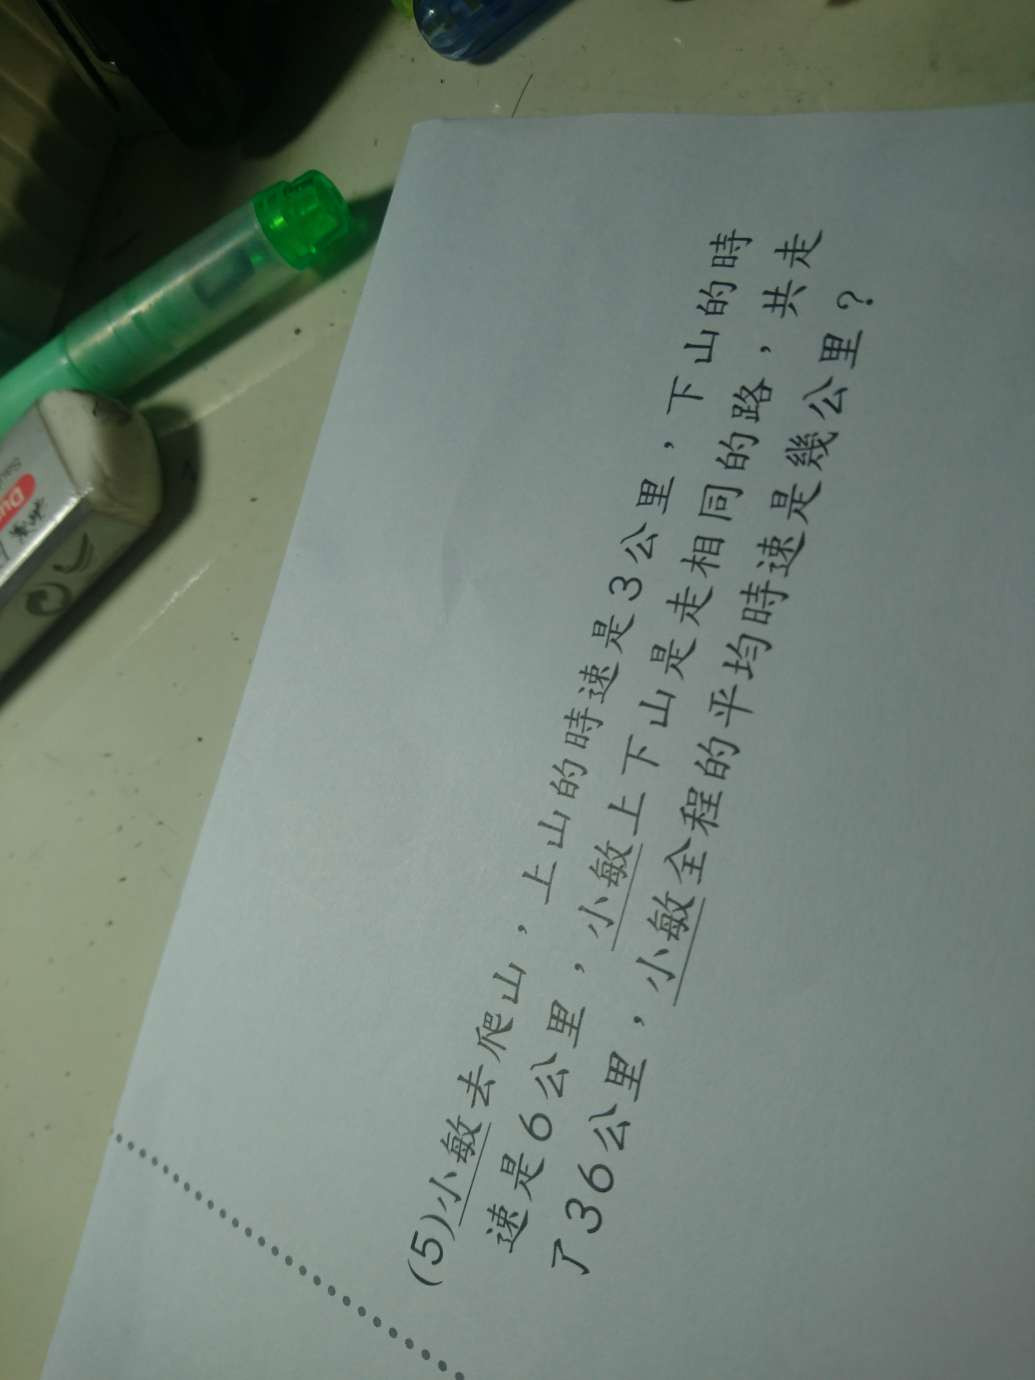 (5)小敏去爬山，上山的時速是3公里，下山的時
速是6公里，小敏上下山是走相同的路，共走
了36公里，小敏全程的平均時速是幾公里？